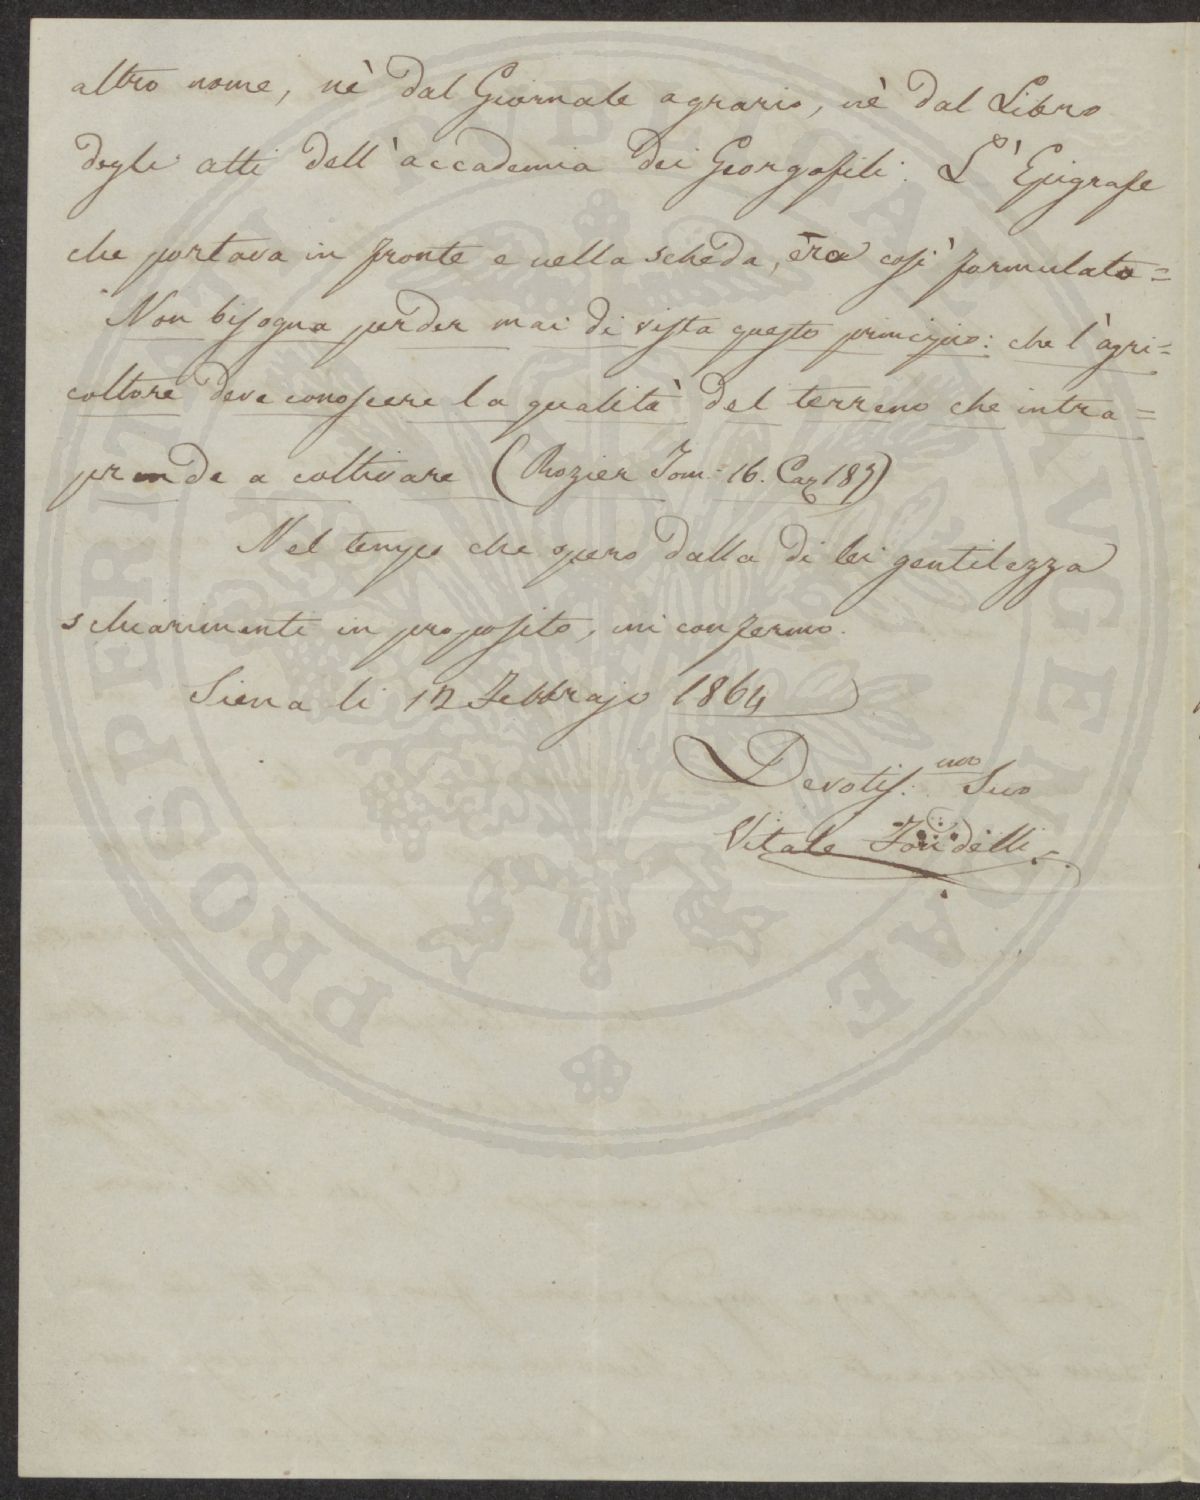 altro nome, nè dal Giornale agrario, nè dal Libro
degli atti dell'accademia dei Georgofili. L'Epigrafe
che portava in fronte e nella scheda, era così formulata=
Non bisogna perder mai di vista questo principio: che l'agri=
coltore deve conoscere la qualità del terreno che intra=
prende a coltivare (Rozier Tom. 16. Cap 187)
Nel tempo che spero dalla di lei gentilezza
schiarimenti in proposito, mi confermo.
Siena li 12 Febbrajo 1864
Devotis.mo Suo
Vitale
PUBLICAE
PROSPERITATI AUGENDAE